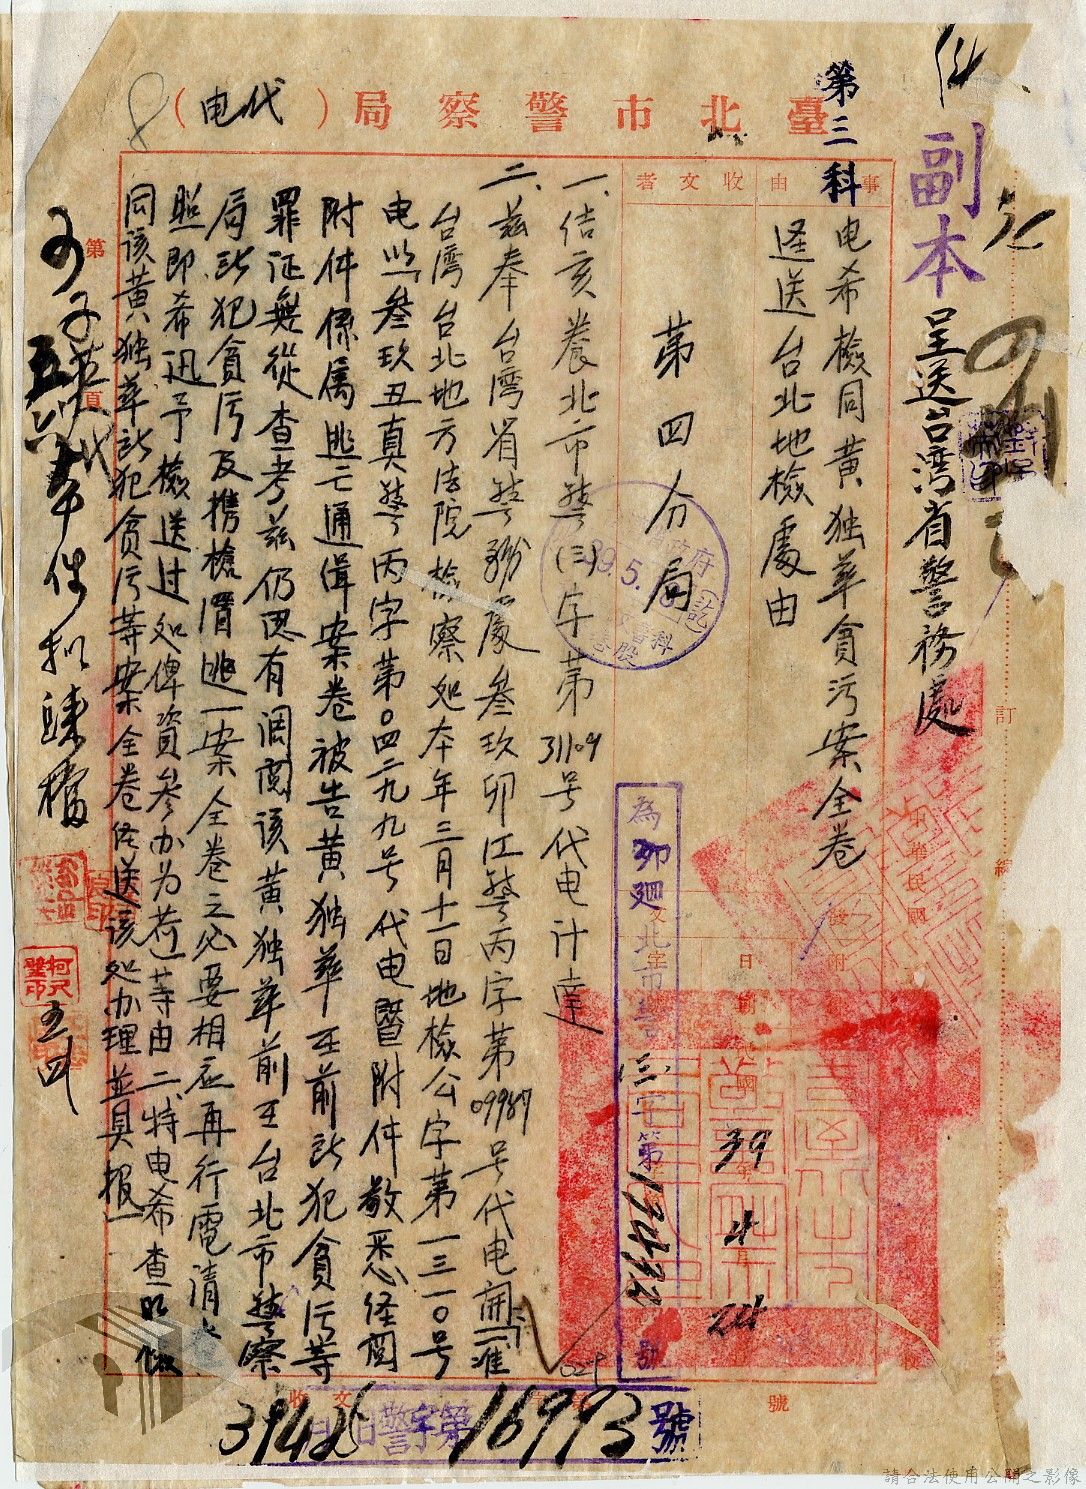 臺北市警察局（代电）
第三科
副本
呈送台湾省警務處
事由
电希檢同黄独萃貪污案全卷
逕送台北地檢處由
收文者
第四分局
中華民國
39年4月24
為卯廻北市警(三)字第 號
一、佶亥養北市警(三)字第31109号代电计達
二、茲奉台湾省警務處叁玖卯江警丙字第09987号代电開「准
台湾台北地方法院檢察処本年三月十一日地檢公字第一三一〇号
电以「叁玖丑真警丙字第〇四二九九号代电暨附件敬悉経閲
附件係属逃亡通缉案卷被告黄独萃在前所犯貪污等
罪证無從查考茲仍認有调閲该黄独萃前在台北市警察
局所犯貪污及携槍潛逃一案全卷之必要相应再行電請
照即希迅予檢送过処俾資參办为荷」等由二、特电希查照檢
同该黄独萃所犯貪污等案全卷逕送该処办理並具报」
第 頁
訂
線
收文 警 字第16993號
39426
柯
五
請合法使用公開之影像